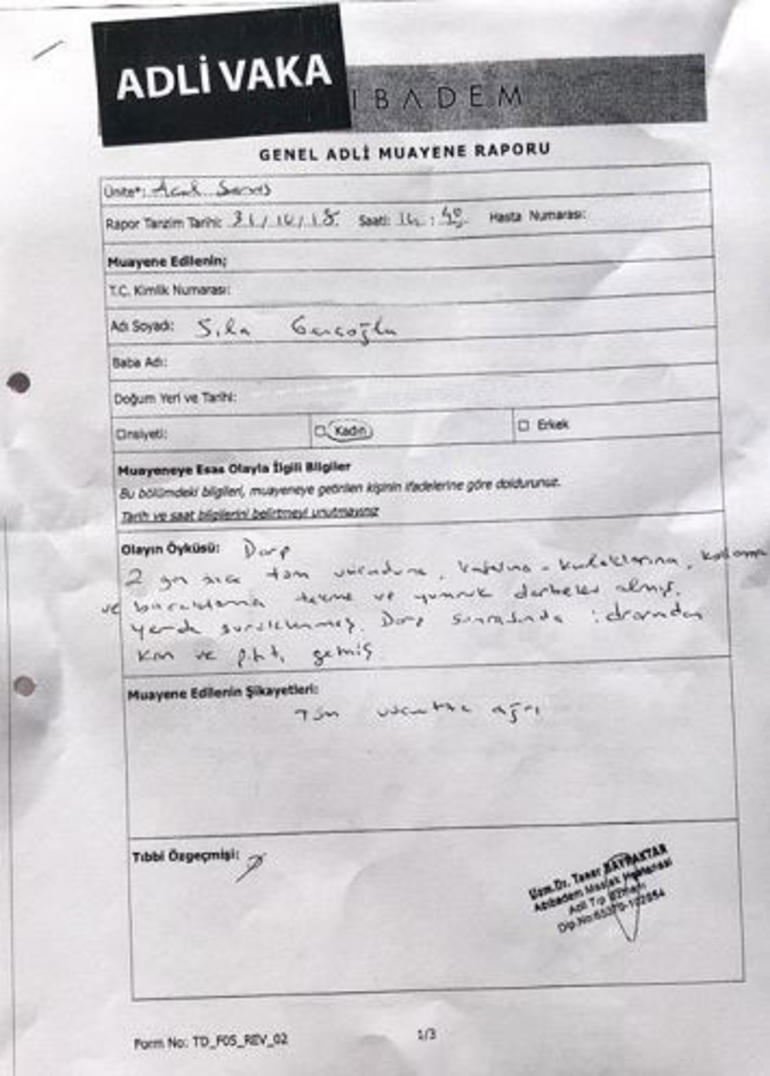 ADLİ VAKA
IBADEM
GENEL ADLİ MUAYENE RAPORU
Ünite*: Acil Servis
Rapor Tanzim Tarihi: 31/10/18 Saati: 16:40 Hasta Numarası:
Muayene Edilenin;
T.C. Kimlik Numarası:
Adı Soyadı: Sıla Gençoğlu
Baba Adı:
Doğum Yeri ve Tarihi:
Cinsiyeti: Kadın Erkek
Muayeneye Esas Olayla İlgili Bilgiler
Bu bölümdeki bilgileri, muayeneye getirilen kişinin ifadelerine göre doldurunuz.
Tarih ve saat bilgilerini belirtmeyi unutmayınız
Olayın Öyküsü: Darp
2 gün önce tüm vücuduna, kafasına - kulaklarına, koluna
ve bacaklarına tekme ve yumruk darbeleri almış.
Yerde sürüklenmiş. Darp sonrasında idrarından
kan ve pıhtı gelmiş
Muayene Edilenin Şikayetleri:
Tüm vücutta ağrı
Tıbbi Özgeçmişi:
Uzm.Dr. Taner BAYRAKTAR
Acıbadem Maslak Hastanesi
Acil Tıp Uzmanı
Form No: TD_F05_REV_02
1/3